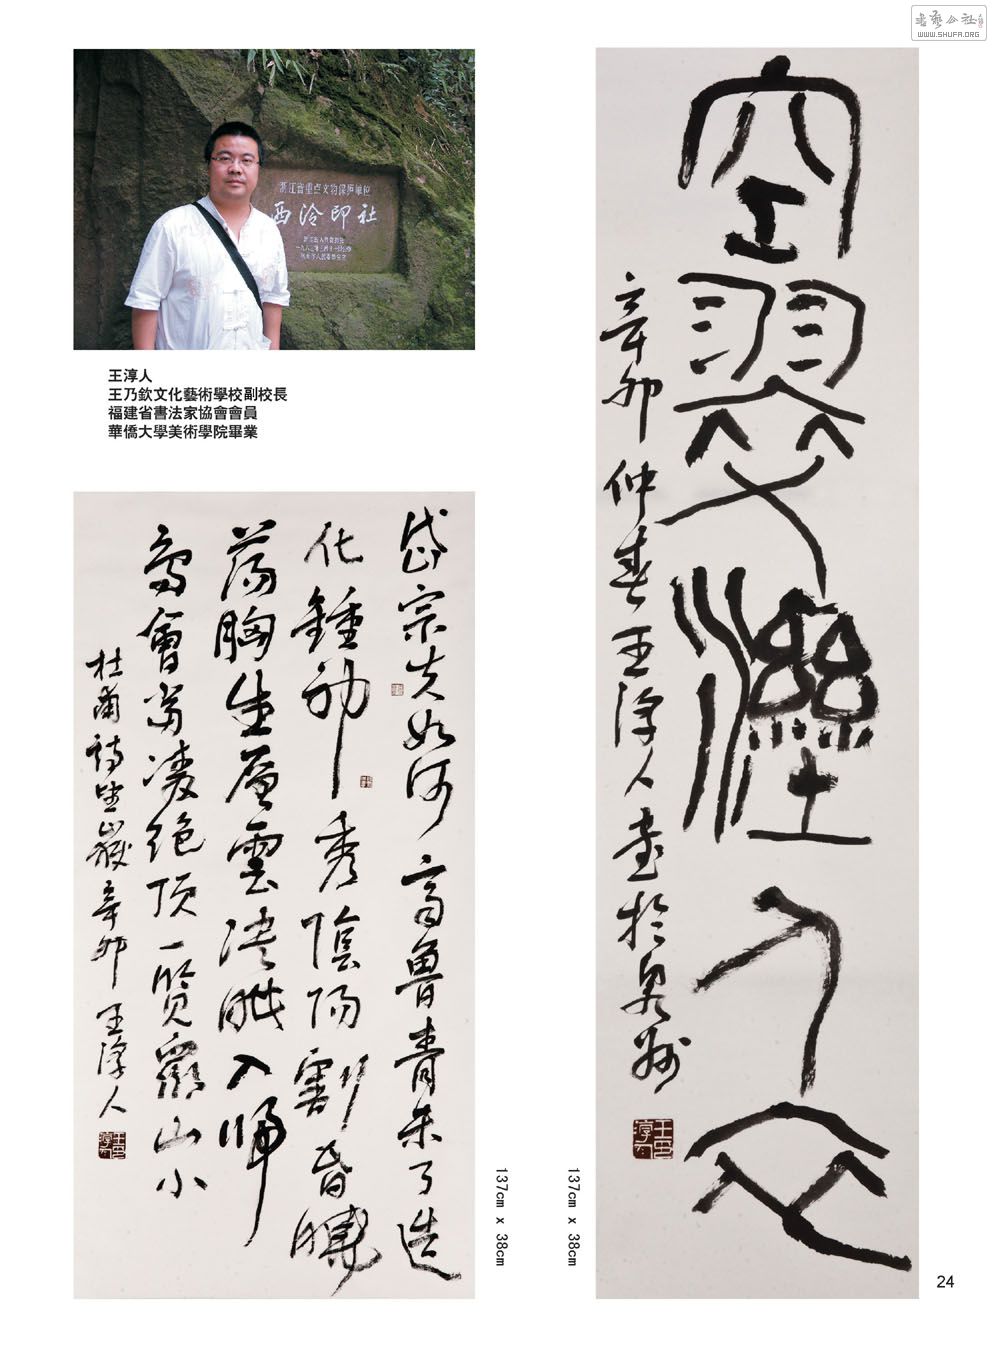 書藝公社
WWW.SHUFA.ORG
浙江省重点文物保护单位
西泠印社
王淳人
王乃欽文化藝術學校副校長
福建省書法家協會會員
華僑大學美術學院畢業
岱宗夫如何齊魯青未了造
化鍾神秀陰陽割昏曉
蕩胸生層雲決眥入歸
鳥會當凌絕頂一覽眾山小
杜甫詩望嶽辛卯王淳人
137cm x 38cm
空翠溼人衣
辛卯仲春王淳人書於泉州
137cm x 38cm
24